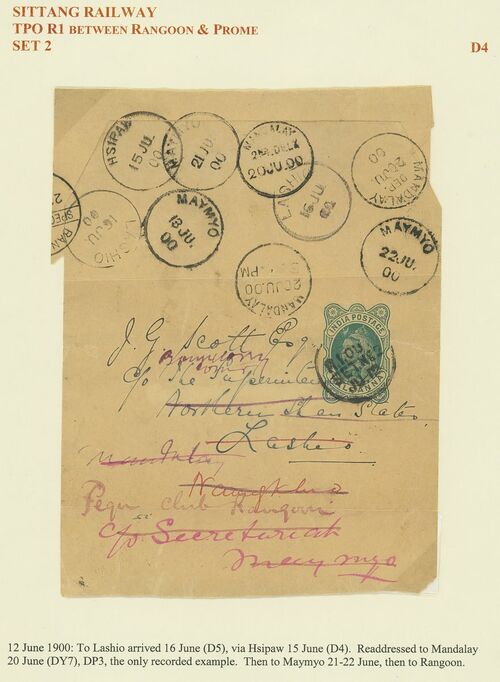 SITTANG RAILWAY
TPO R1 BETWEEN RANGOON & PROME
SET 2
D4
HSIPAW
15 JU.
00
MAYMYO
21 JU.
00
MANDALAY
20 JU.00
LASHIO
16 JU.
00
MANDALAY
DEP.
20 JU.
00
LASHIO
16 JU
00
MAYMYO
18 JU.
00
MAYMYO
22 JU.
00
20 JU.00
MANDALAY
INDIA POSTAGE
HALF ANNA
J. G. Scott Esq
c/o The Superinten
Northern Shan States
Lashio
Mandalay
Pegu club Rangoon
c/o Secretariat
Maymyo
12 June 1900: To Lashio arrived 16 June (D5), via Hsipaw 15 June (D4). Readdressed to Mandalay
20 June (DY7), DP3, the only recorded example. Then to Maymyo 21-22 June, then to Rangoon.